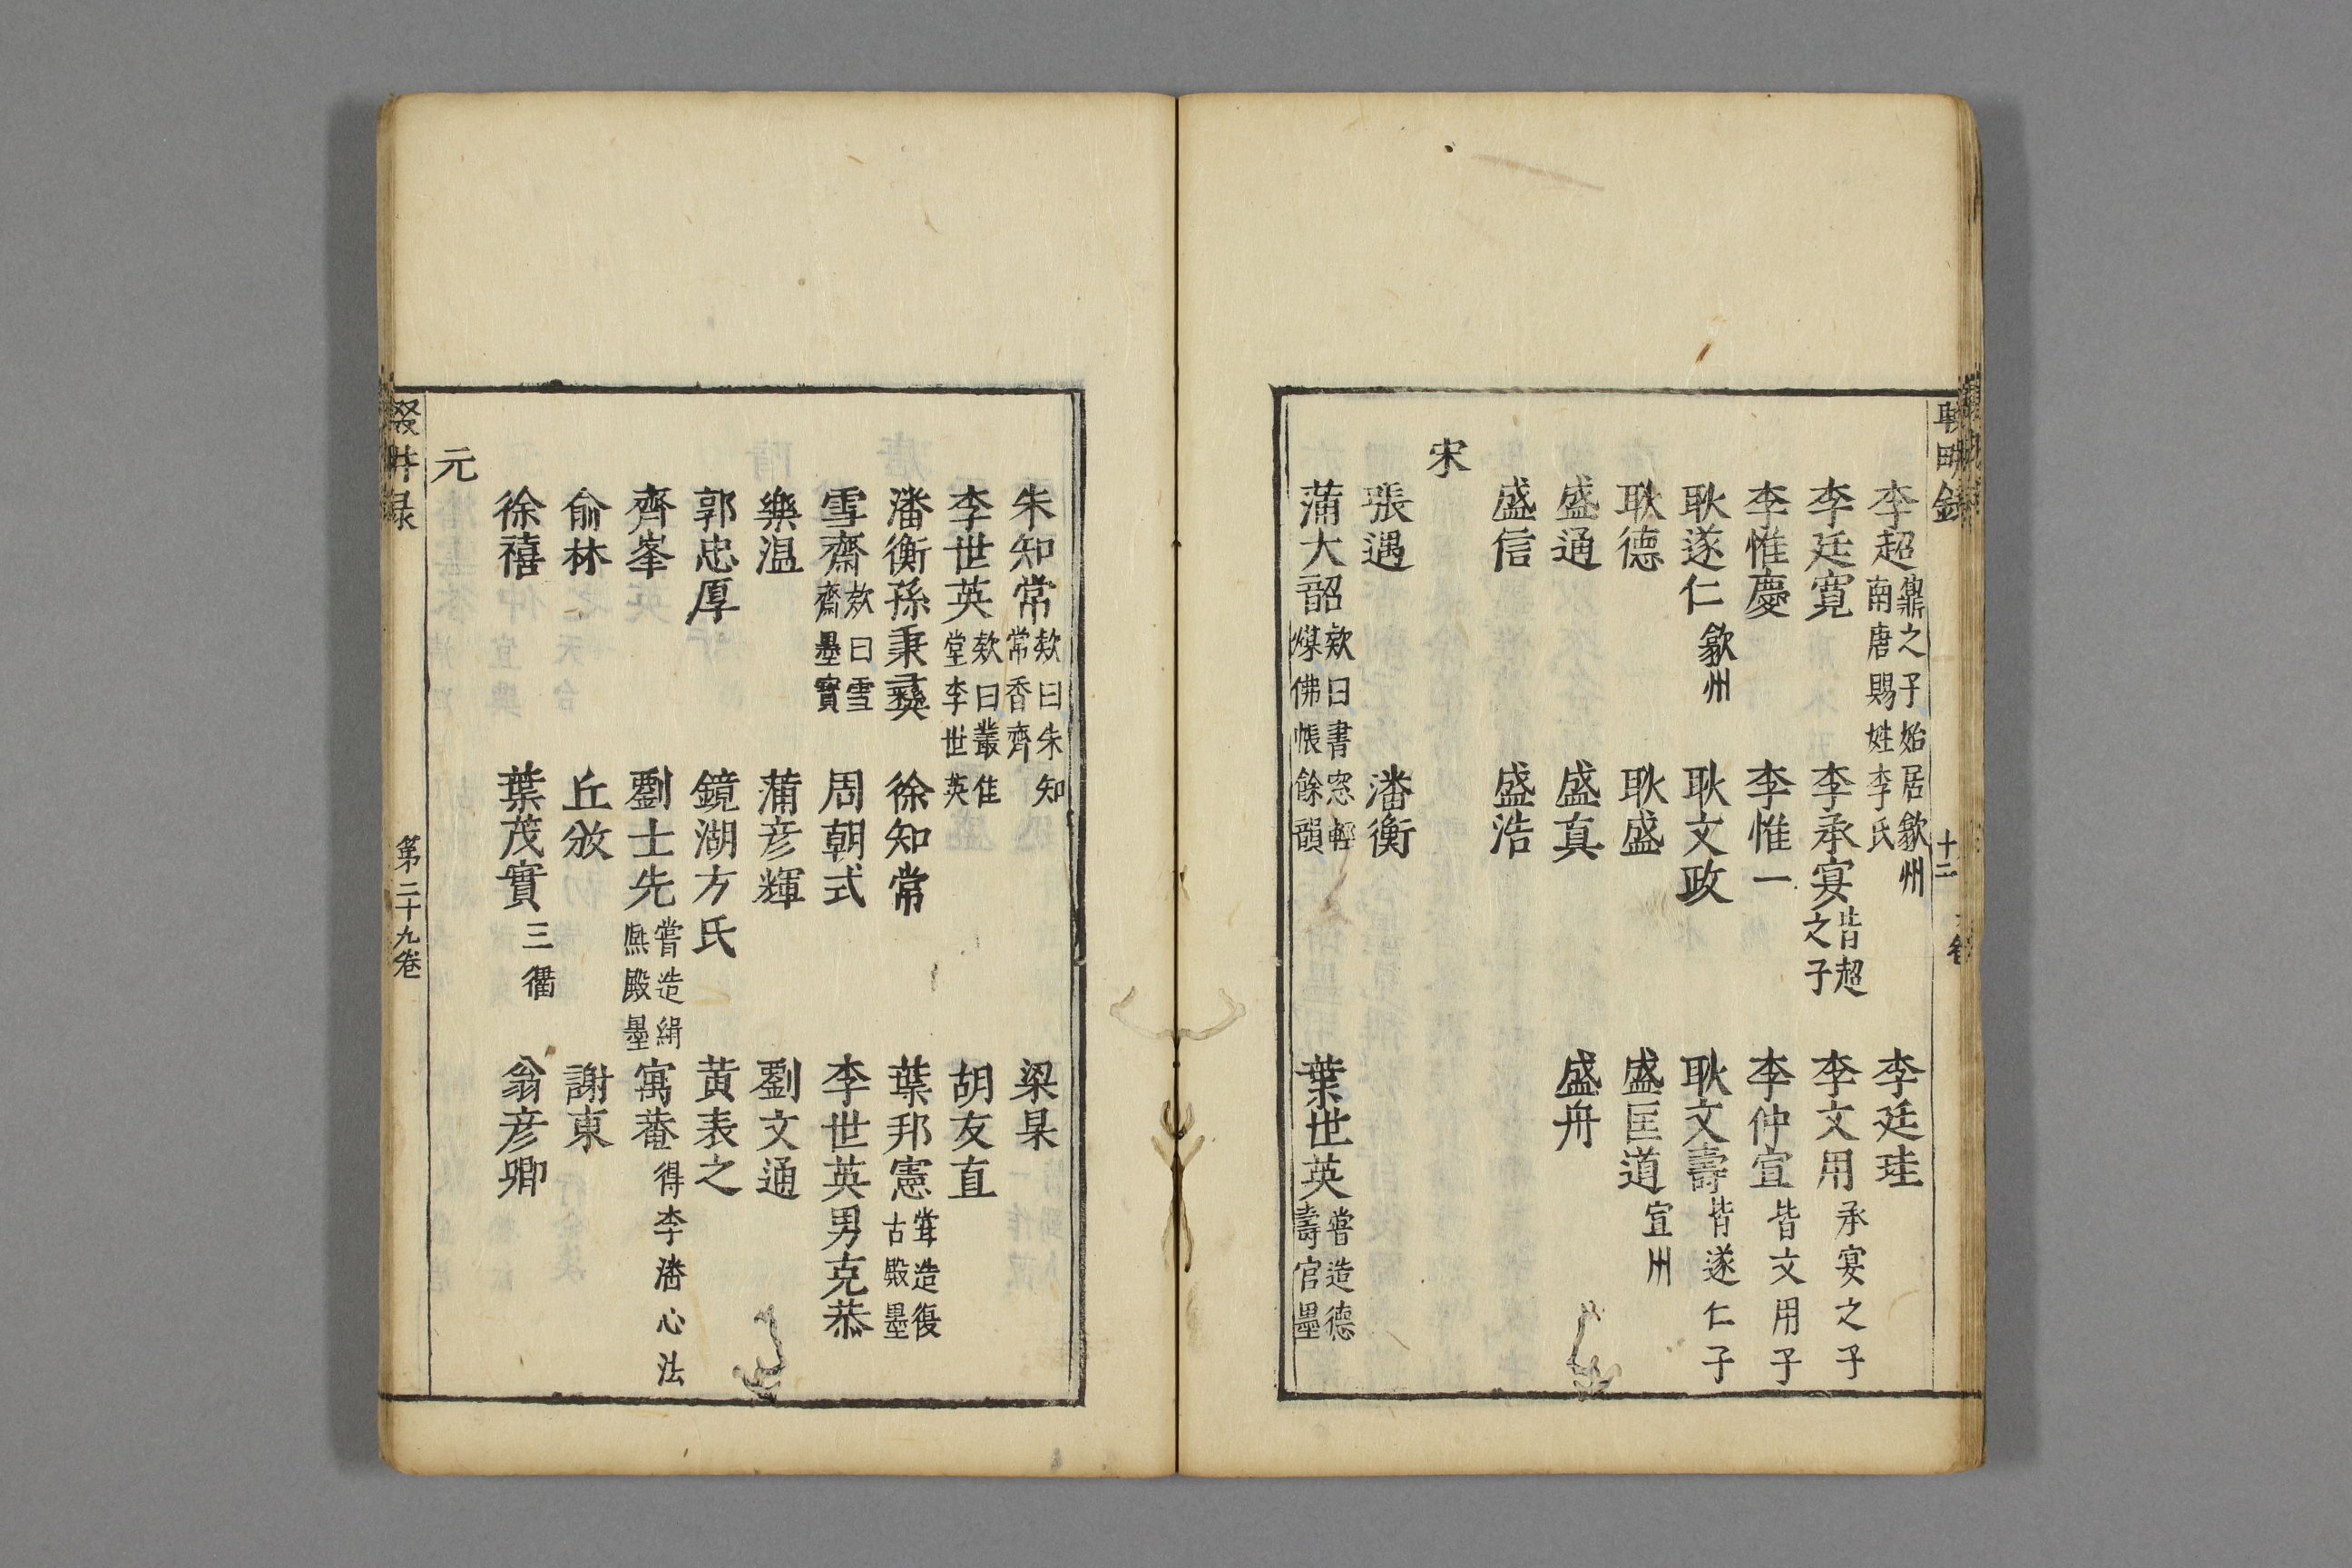 李超鼐之子始居歙州南唐賜姓李氏　李廷珪
李廷寛　李承宴皆超之子　李文用承宴之子
李惟慶　李惟一　李仲宣皆文用子
耿遂仁歙州　耿文政　耿文壽皆遂仁子
耿德　耿盛　盛匡道宣州
盛通　盛真　盛舟
盛信　盛浩
宋
張遇　潘衡
蒲大韶欵曰書窓輕煤佛帳餘韻　葉世英嘗造德壽官墨
朱知常欵曰朱知常香齊　梁杲
李世英欵曰叢佳堂李世英　胡友直
潘衡孫秉彞　徐知常　葉邦憲嘗造復古殿墨
雪齋欵曰雪齋墨寳　周朝式　李世英男克恭
樂温　蒲彦輝　劉文通
郭忠厚　鏡湖方氏　黄表之
齊峯　劉士先嘗造緝熈殿墨　寓菴得李潘心法
俞林　丘攽　謝東
徐禧　葉茂實三衢　翁彦卿
元
第二十九卷